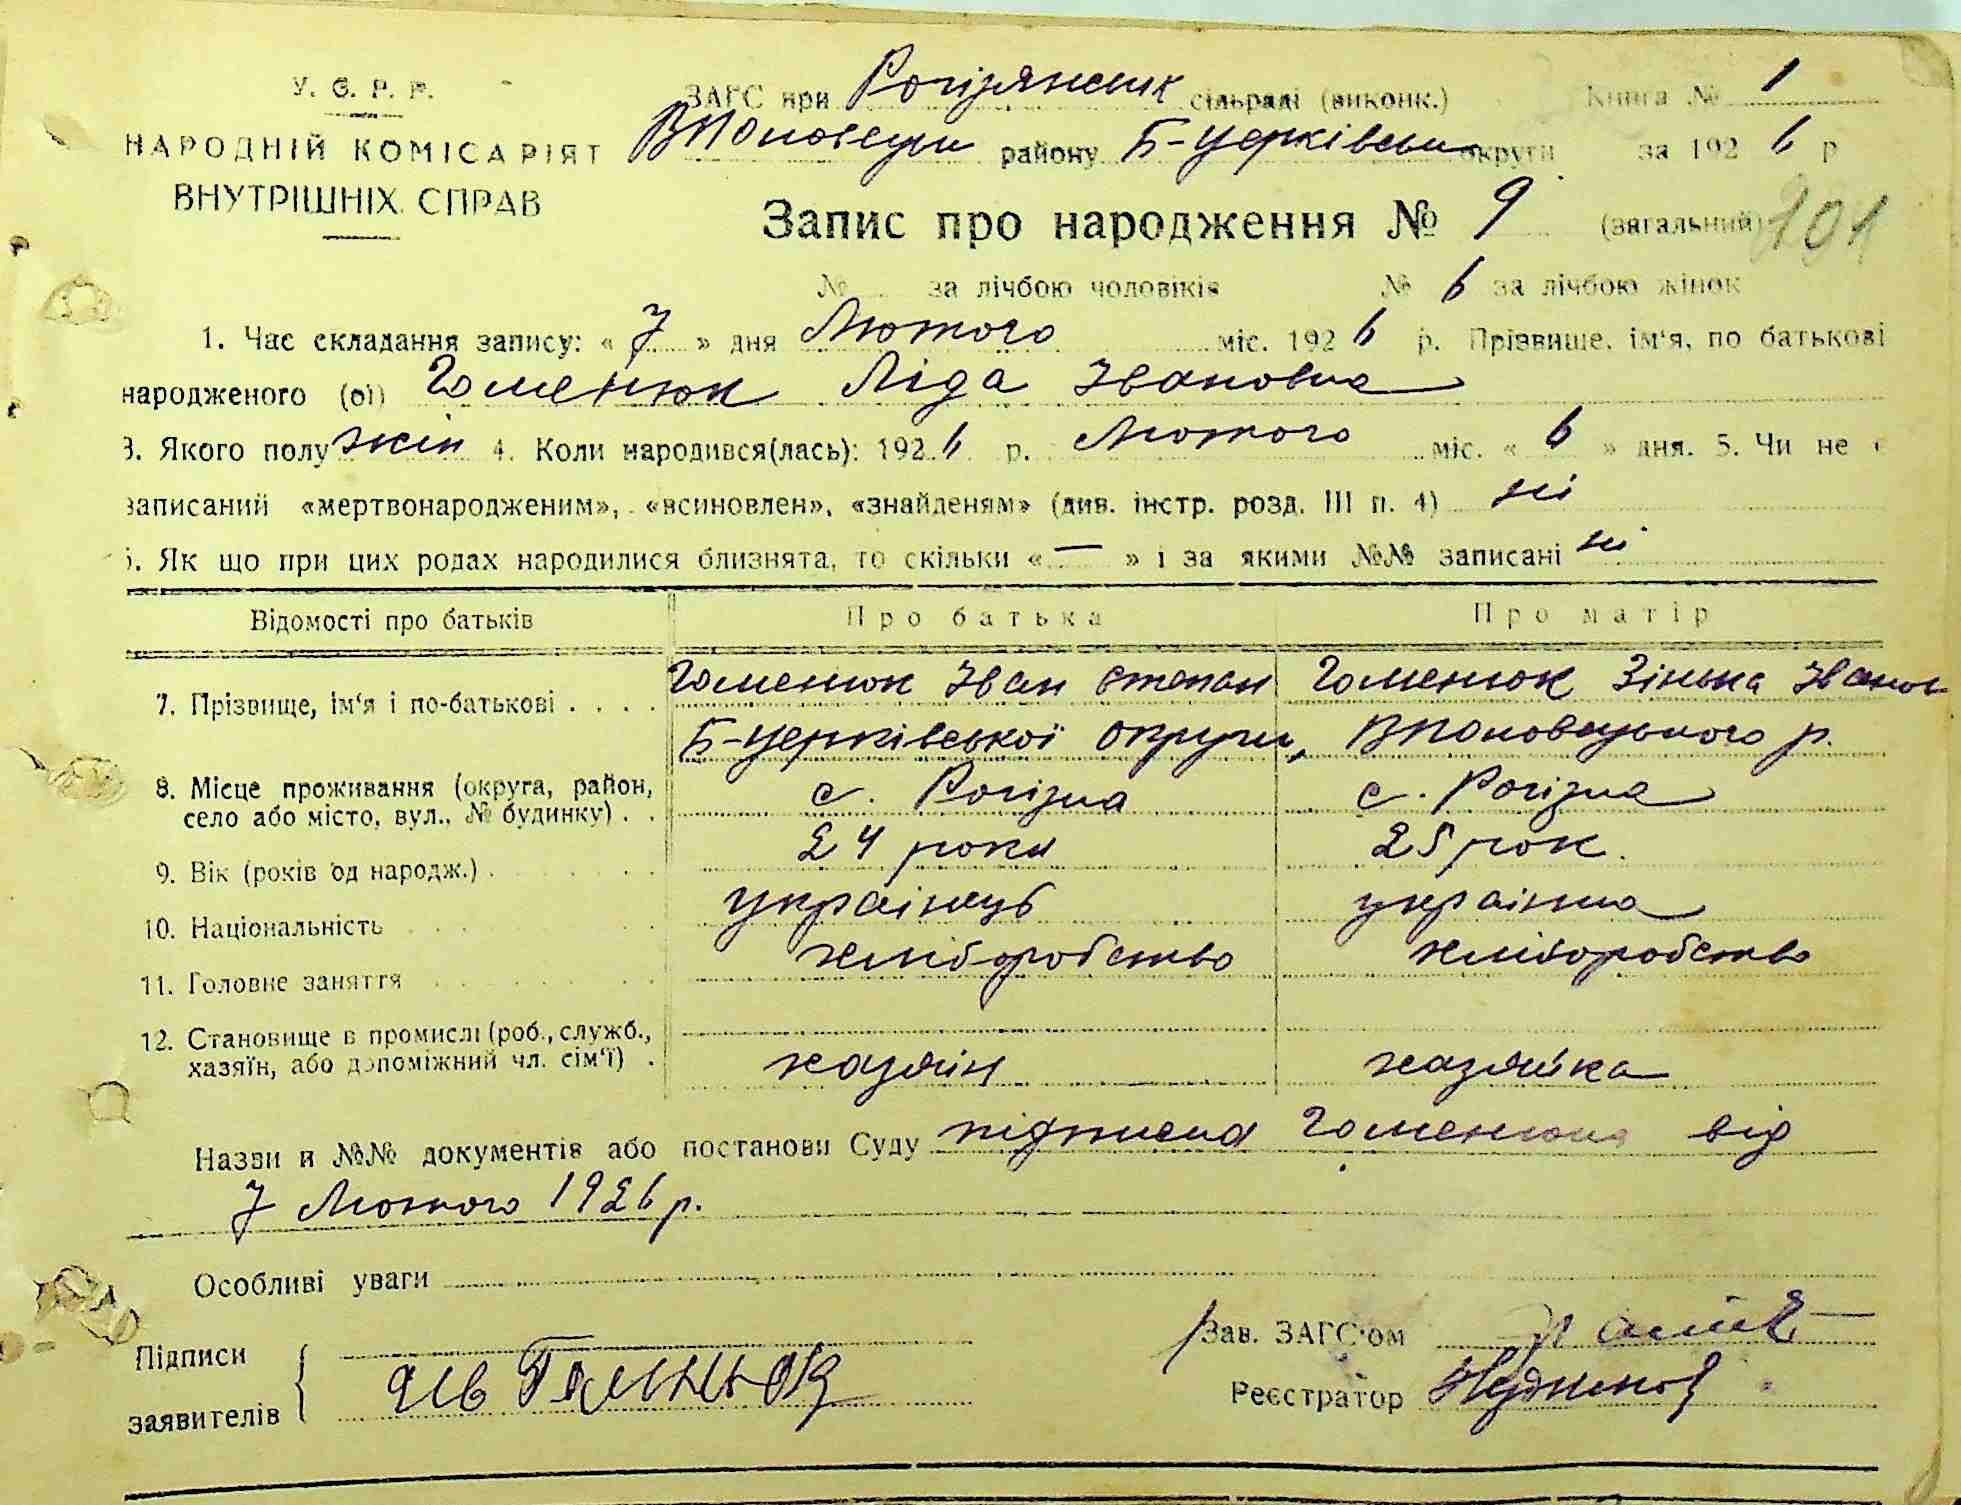 У. С. Р. Р.
НАРОДНІЙ КОМІСАРІЯТ
ВНУТРІШНІХ СПРАВ
ЗАГС при Рогізянськ сільраді (виконк.) Книга № 1
ВПоловецьк району Б-Церківськ округи за 1926 р
Запис про народження № 9 (загальний) 101
№ за лічбою чоловіків № 6 за лічбою жінок
1. Час складання запису: « 7 » дня Лютого міс. 1926 р. Прізвище, ім'я, по батькові
народженого (ої) Гоменюк Ліда Івановна
3. Якого полу жін 4. Коли народився(лась): 1926 р. Лютого міс. « 6 » дня. 5. Чи не є
записаний «мертвонародженим», «всиновлен», «знайденям» (див. інстр. розд. III п. 4) ні
6. Як що при цих родах народилися близнята, то скільки « — » і за якими №№ записані ні
Відомості про батьків Про батька Про матір
7. Прізвище, ім'я і по-батькові . . . . Гоменюк Іван Степан Гоменюк Зінька Іванов
Б-Церківської округи, ВПоловецького р.
8. Місце проживання (округа, район,
село або місто, вул., № будинку) . . с. Рогізна с. Рогізна
9. Вік (років од народж.) . 24 роки 25 рок.
10. Національність українець українка
11. Головне заняття хліборобство хліборобство
12. Становище в промислі (роб., служб.,
хазяїн, або допоміжний чл. сім'ї) . хазяїн хазяйка
Назви и №№ документів або постанови Суду підписка Гоменюка від
7 Лютого 1926 р.
Особливі уваги
Підписи
заявителів Гоменюк
Зав. ЗАГС'ом
Реєстратор